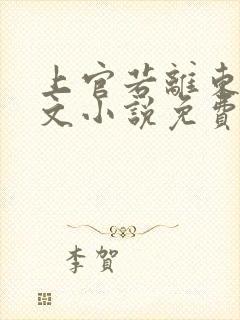 上官若離東
文小說免費
李賀